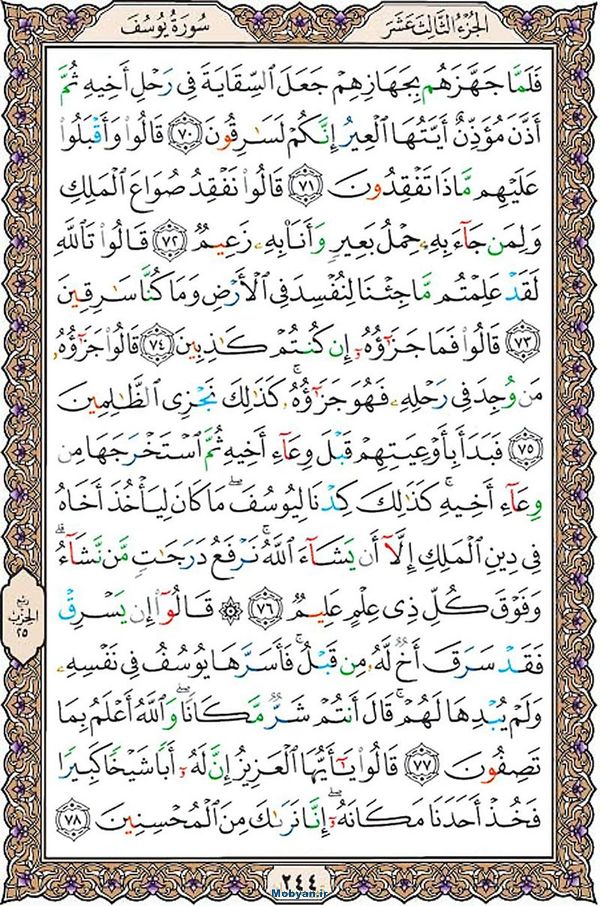 الجزء الثالث عشر
سورة يوسف
فَلَمَّا جَهَّزَهُم بِجَهَازِهِمْ جَعَلَ ٱلسِّقَايَةَ فِى رَحْلِ أَخِيهِ ثُمَّ
أَذَّنَ مُؤَذِّنٌ أَيَّتُهَا ٱلْعِيرُ إِنَّكُمْ لَسَٰرِقُونَ ٧٠ قَالُوا۟ وَأَقْبَلُوا۟
عَلَيْهِم مَّاذَا تَفْقِدُونَ ٧١ قَالُوا۟ نَفْقِدُ صُوَاعَ ٱلْمَلِكِ
وَلِمَن جَآءَ بِهِۦ حِمْلُ بَعِيرٍ وَأَنَا۠ بِهِۦ زَعِيمٌ ٧٢ قَالُوا۟ تَٱللَّهِ
لَقَدْ عَلِمْتُم مَّا جِئْنَا لِنُفْسِدَ فِى ٱلْأَرْضِ وَمَا كُنَّا سَٰرِقِينَ
٧٣ قَالُوا۟ فَمَا جَزَٰٓؤُهُۥٓ إِن كُنتُمْ كَٰذِبِينَ ٧٤ قَالُوا۟ جَزَٰٓؤُهُۥ
مَن وُجِدَ فِى رَحْلِهِۦ فَهُوَ جَزَٰٓؤُهُۥ ۚ كَذَٰلِكَ نَجْزِى ٱلظَّٰلِمِينَ
٧٥ فَبَدَأَ بِأَوْعِيَتِهِمْ قَبْلَ وِعَآءِ أَخِيهِ ثُمَّ ٱسْتَخْرَجَهَا مِن
وِعَآءِ أَخِيهِ ۚ كَذَٰلِكَ كِدْنَا لِيُوسُفَ ۖ مَا كَانَ لِيَأْخُذَ أَخَاهُ
فِى دِينِ ٱلْمَلِكِ إِلَّآ أَن يَشَآءَ ٱللَّهُ ۚ نَرْفَعُ دَرَجَٰتٍ مَّن نَّشَآءُ ۗ
وَفَوْقَ كُلِّ ذِى عِلْمٍ عَلِيمٌ ٧٦ ۞ قَالُوٓا۟ إِن يَسْرِقْ
فَقَدْ سَرَقَ أَخٌ لَّهُۥ مِن قَبْلُ ۚ فَأَسَرَّهَا يُوسُفُ فِى نَفْسِهِۦ
وَلَمْ يُبْدِهَا لَهُمْ ۚ قَالَ أَنتُمْ شَرٌّ مَّكَانًا ۖ وَٱللَّهُ أَعْلَمُ بِمَا
تَصِفُونَ ٧٧ قَالُوا۟ يَٰٓأَيُّهَا ٱلْعَزِيزُ إِنَّ لَهُۥٓ أَبًا شَيْخًا كَبِيرًا
فَخُذْ أَحَدَنَا مَكَانَهُۥٓ ۖ إِنَّا نَرَىٰكَ مِنَ ٱلْمُحْسِنِينَ ٧٨
ربع
الحزب
٢٥
٢٤٤
Mobyan.ir